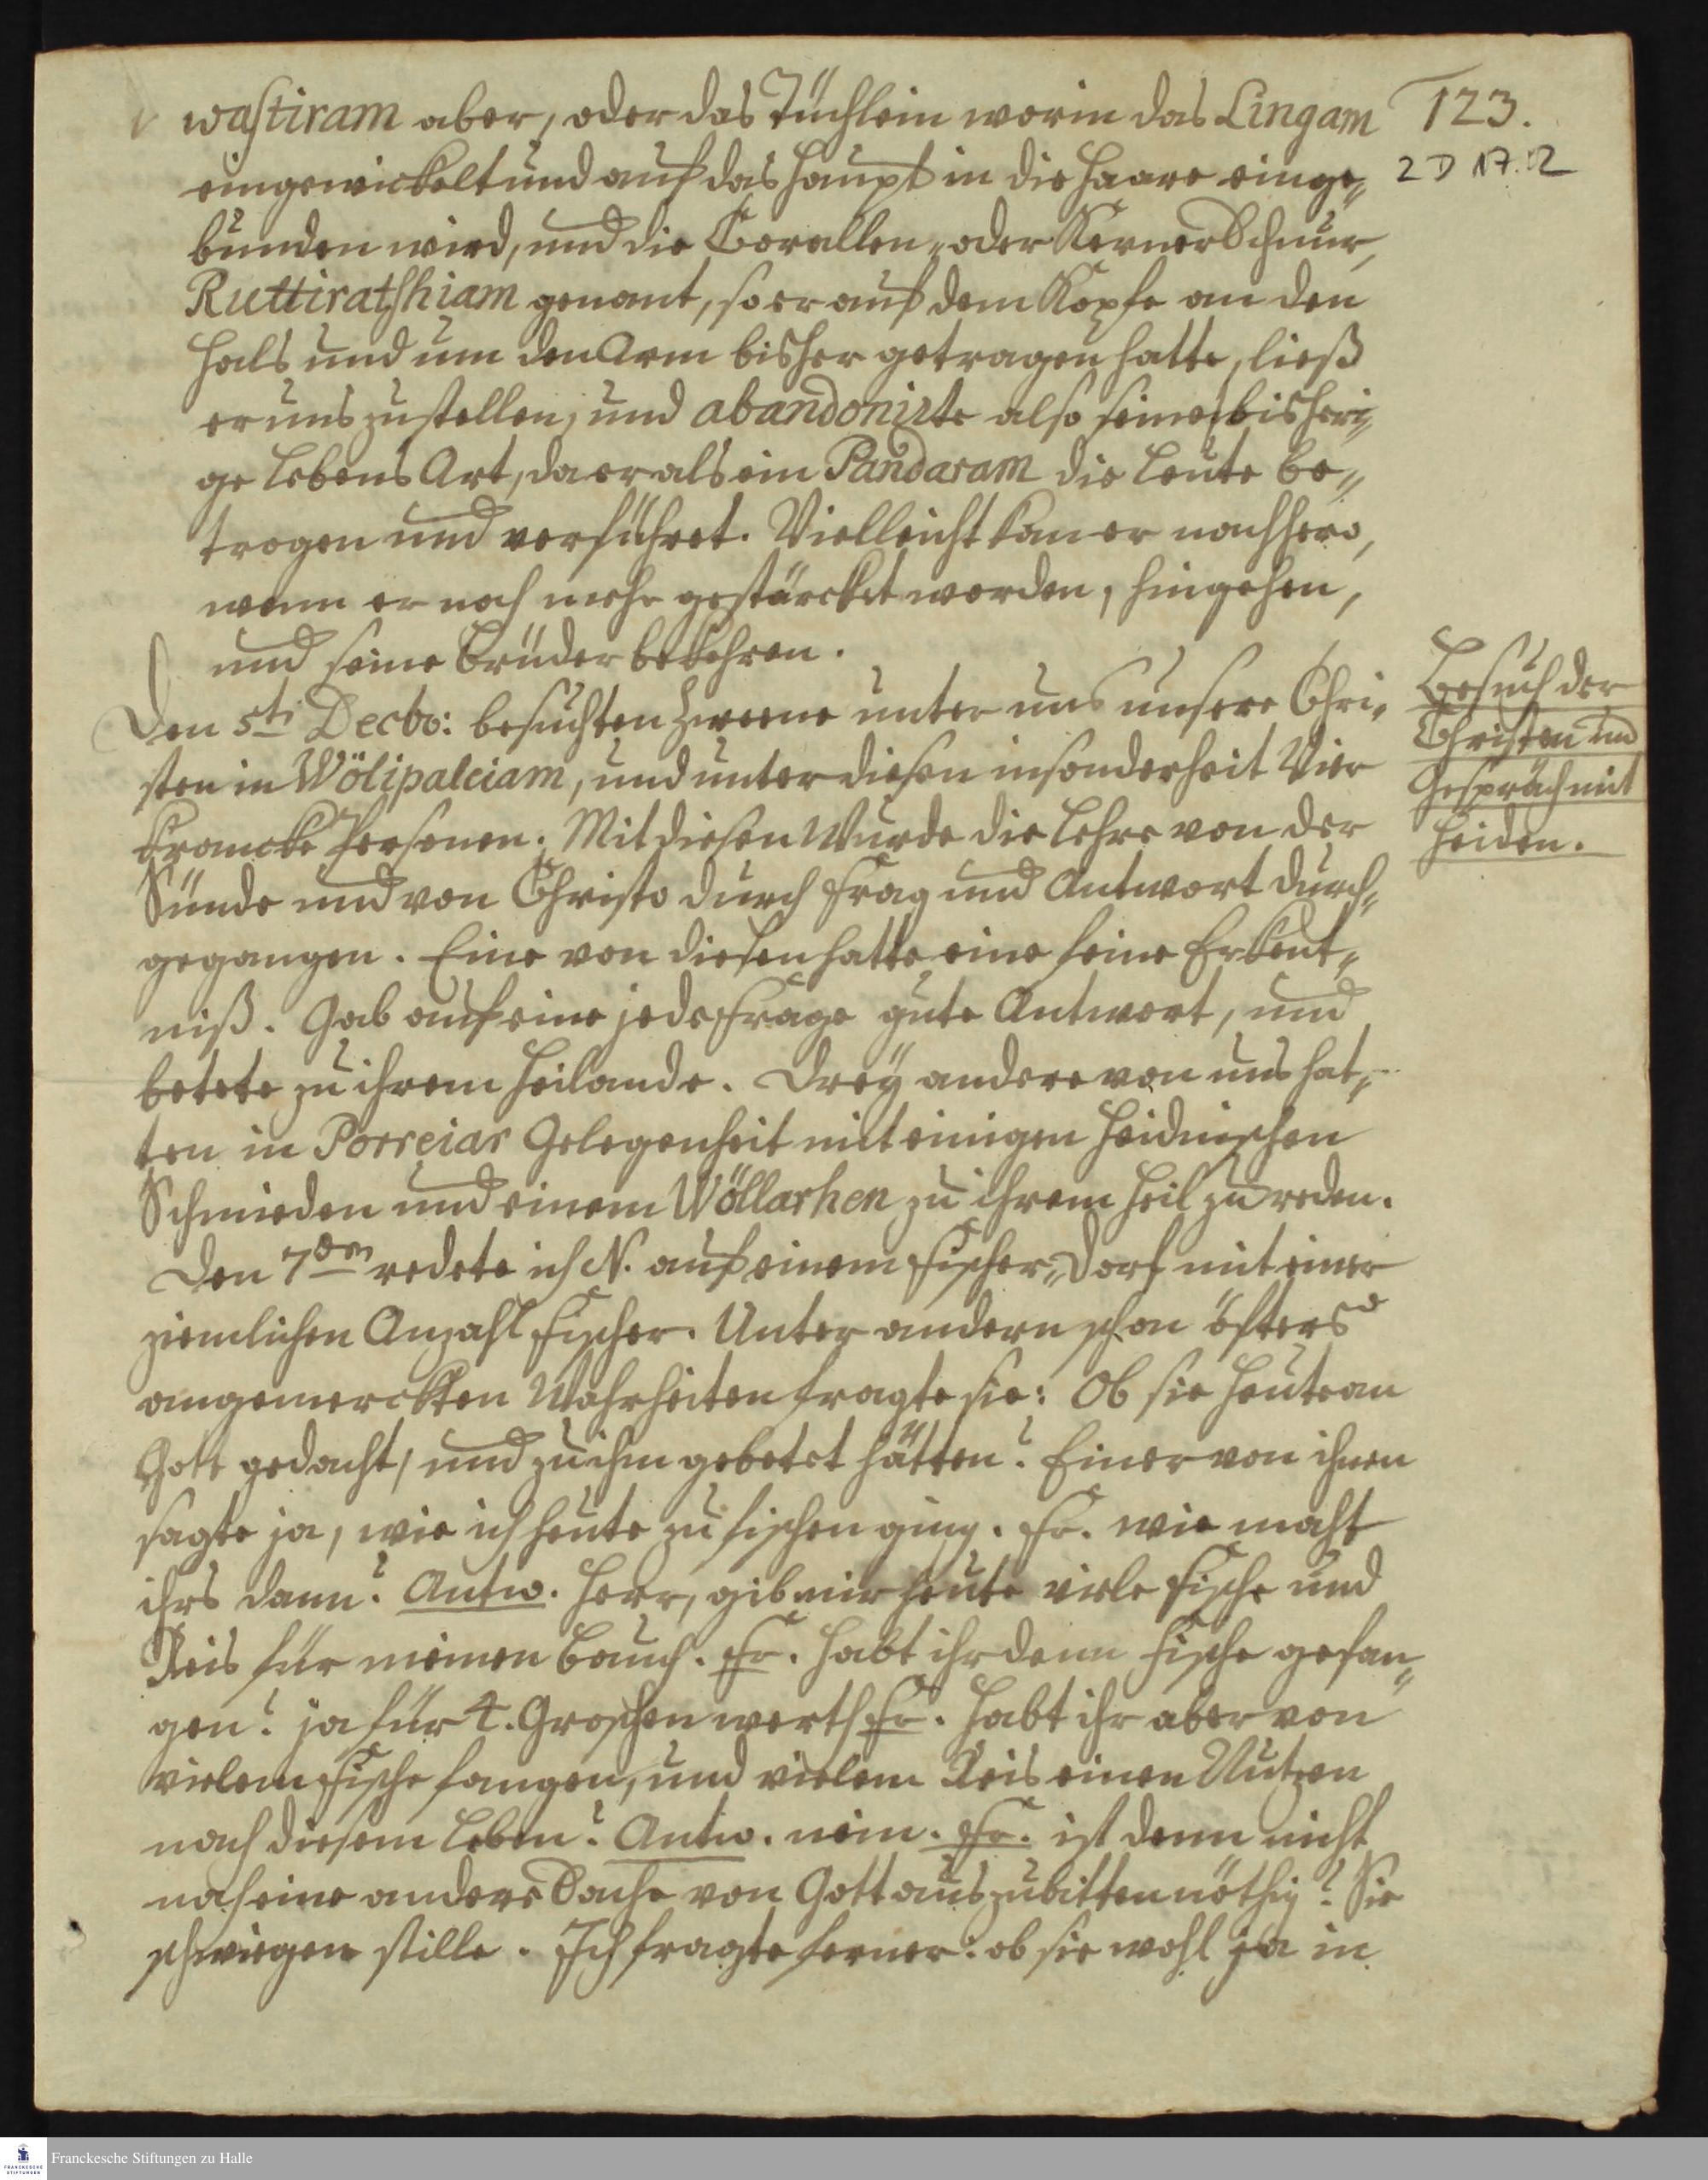 wastiram aber, oder das Tüchlein worin das Lingam
123.
eingewickelt und auf das Haupt in die Haare einge„
2 D 17.12
bunden wird, und die Corallen„ oder Kerner Schnur,
Ruttiratshiam genant, so er auf dem Kopfe an den
Hals und um den Arm bisher getragen hatte, ließ
er uns zustellen, und abandonirte also seine bisheri„
ge Lebens Art, da er als ein Pandaram die Leute be„
trogen und verführet. Vielleicht kan er nachhero,
wenn er noch mehr gestärcket worden, hingehen,
und seine Brüder bekehren.
Den 5ti Decbr: besuchten Zweene unter uns unsere Chri„
sten in Wölipaleiam, und unter diesen insonderheit Vier
krancke Personen. Mit diesen Wurde die Lehre von der
Sünde und von Christo durch Frag und Antwort durch„
gegangen. Eine von diesen hatte eine feine Erkent„
niß. Gab auf eine jede Frage gute Antwort, und
betete zu ihrem Heilande. Drey andere von uns hat„
ten in Porreiar Gelegenheit mit einigen Heidnischen
Schmieden und einem Wöllarhen zu ihrem Heil zu reden.
Den 7den redete ich N. auf einem Fischer„Dorf mit einer
ziemlichen Anzahl Fischer. Unter andern schon öfters
angemerckten Wahrheiten fragte sie: Ob sie heute an
Gott gedacht, und zu ihm gebetet hätten? Einer von ihnen
sagte ja, wie ich heute zu fischen ging. Fr. wie macht
ihrs dann? Antw. Herr, gib mir heute viele Fische und
Reis für meinen Bauch. Fr. Habt ihr denn Fische gefan„
gen? ja für 4. Groschen werth Fr. Habt ihr aber von
vielem Fische fangen, und vielem Reis einen Nutzen
nach diesem Leben? Antw. nein. Fr. ist denn nicht
noch eine andere Sache von Gott auszubitten nöthig? Sie
schwiegen stille. Ich fragte ferner: ob sie wohl ja in
Besuch der
Christen und
Gespräch mit
Heiden.
Franckesche Stiftungen zu Halle
FRANCKESCHE
STIFTUNGEN